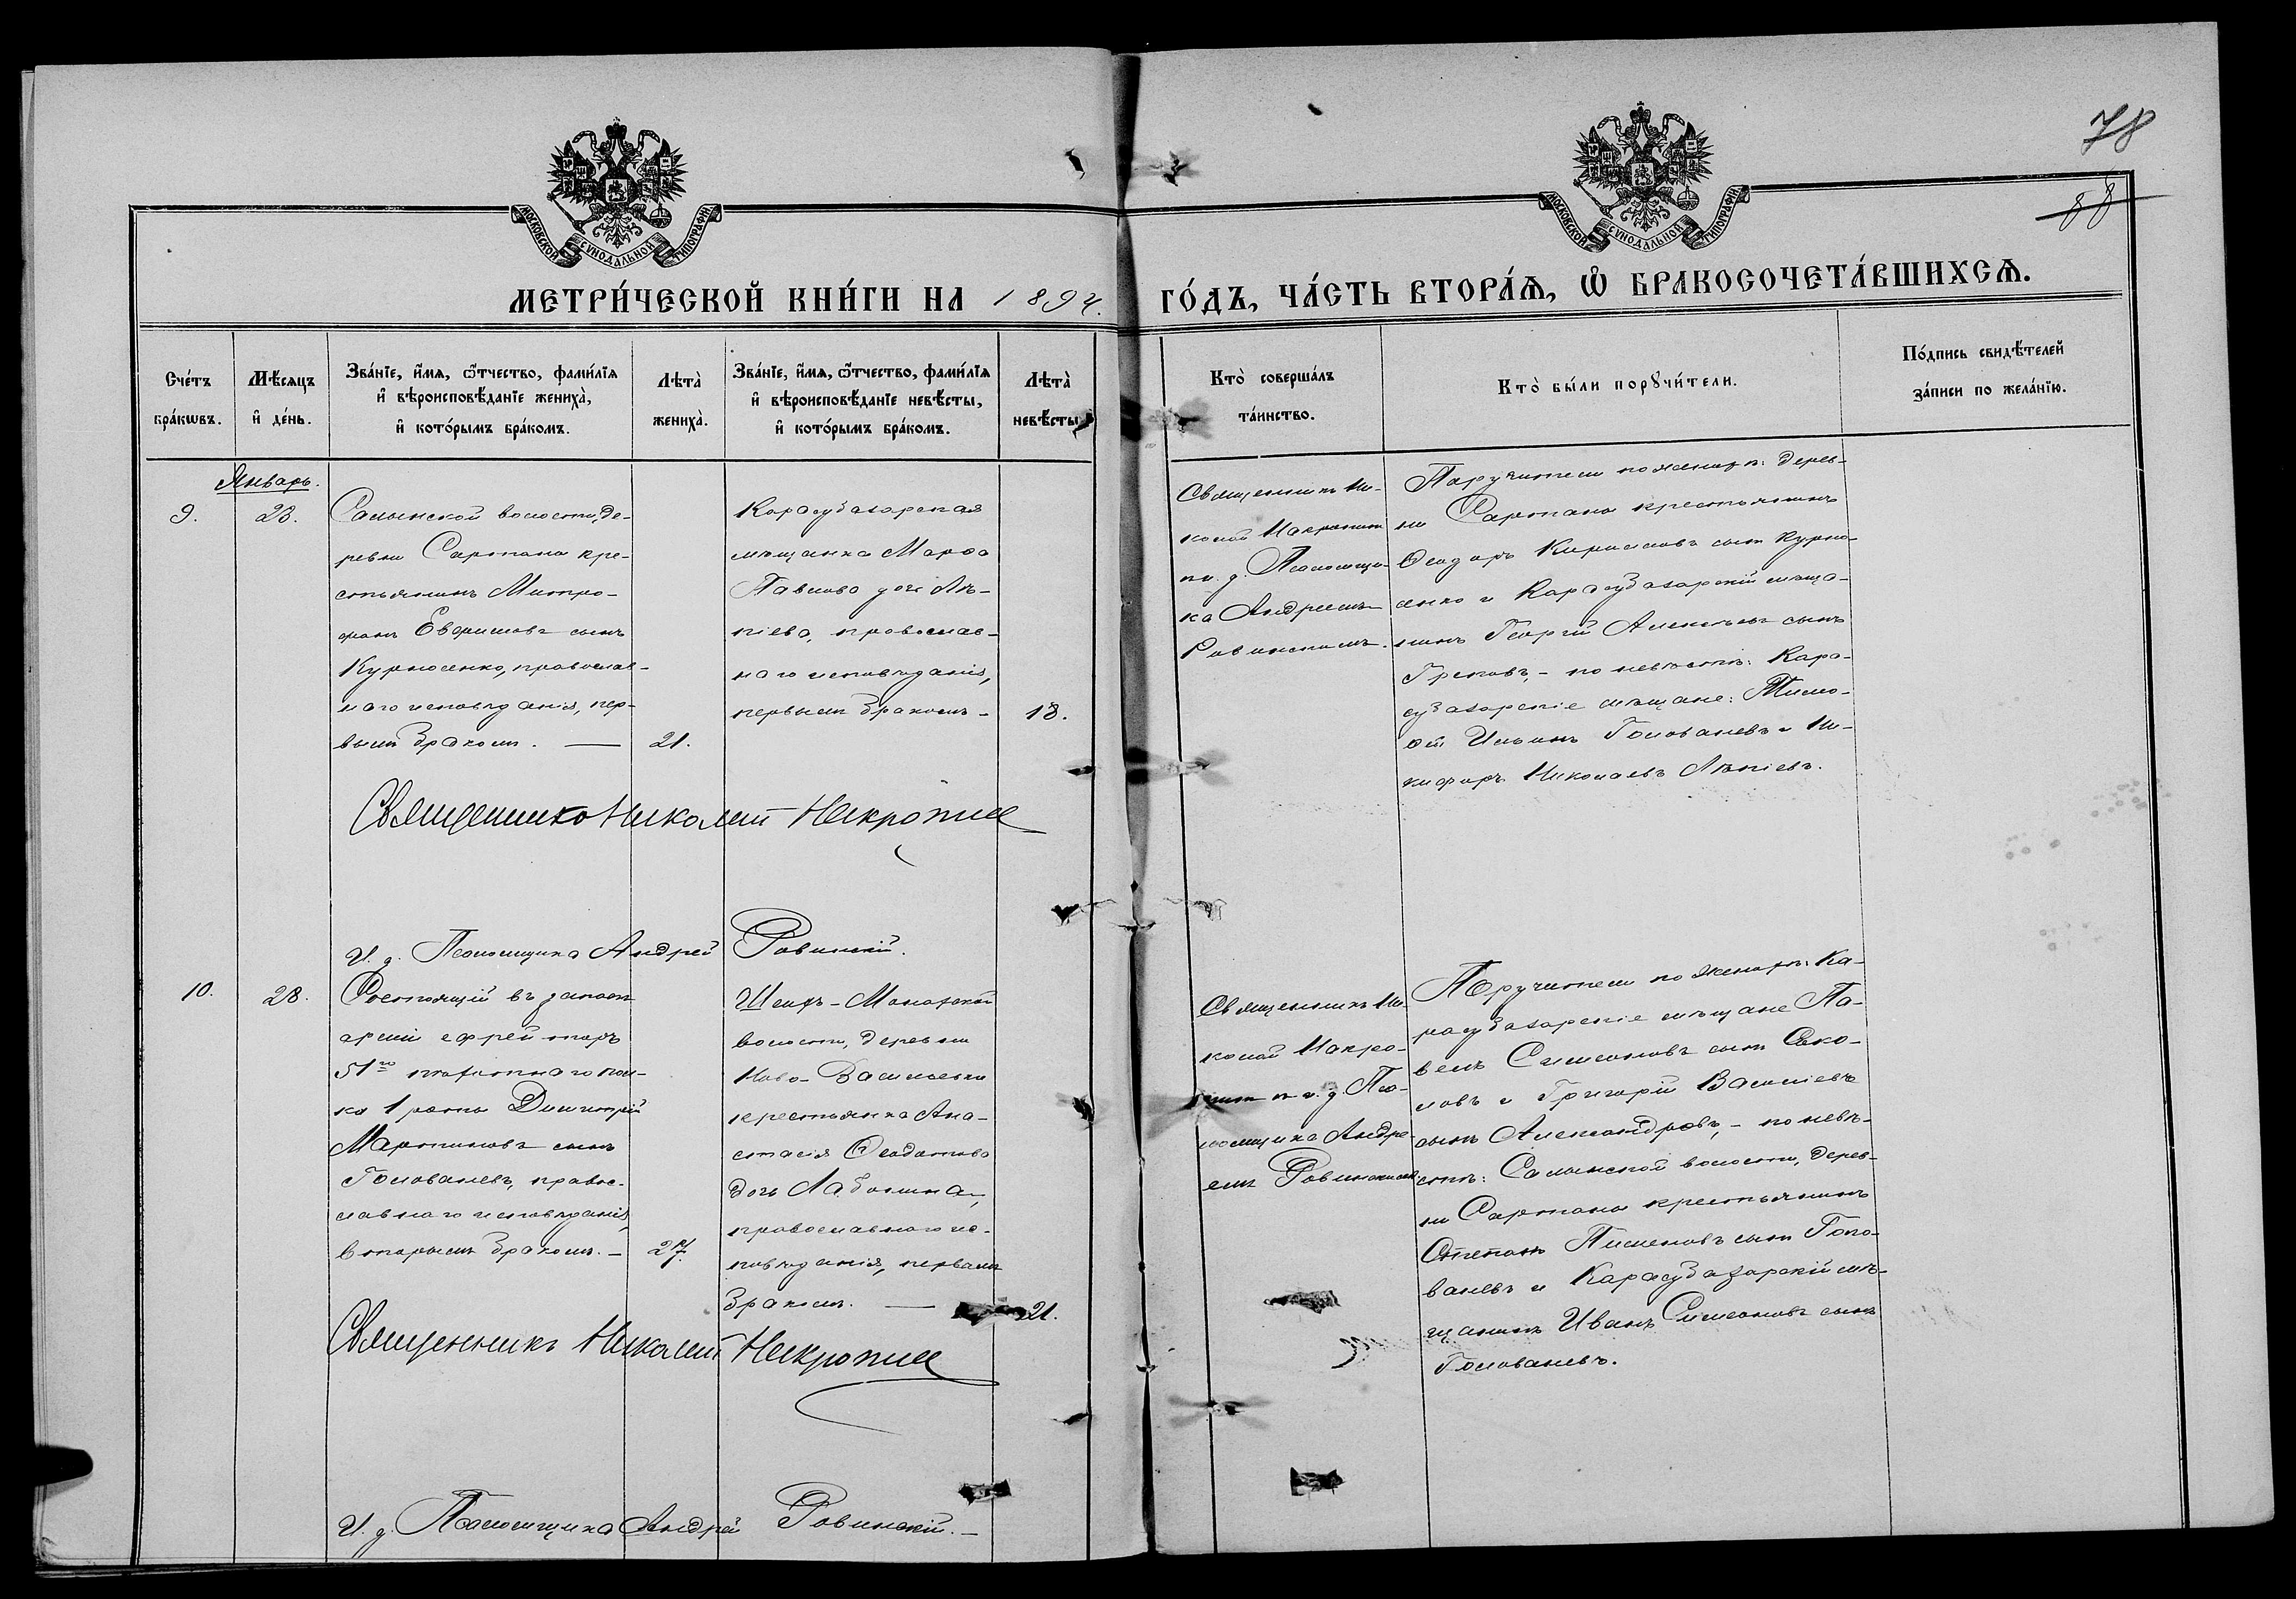 78
88
МОСКОВСКОЙ СѴНОДАЛЬНОЙ ТИПОГРАФІИ
МОСКОВСКОЙ СѴНОДАЛЬНОЙ ТИПОГРАФІИ
МЕТРИ́ЧЕСКОЙ КНИ́ГИ НА 1894. ГО́ДЪ, ЧА́СТЬ ВТОРА́Ѧ, Ѡ҆ БРАКОСОЧЕТА́ВШИХСѦ.
Сче́тъ бра́кѡвъ.
Мѣ́сѧцъ и҆ де́нь.
Зва́нїе, и҆́мѧ, ѻ҆́тчество, фами́лїѧ
и҆ вѣроисповѣ́данїе жениха̀,
и҆ кото́рымъ бра́комъ.
Лѣта̀ жениха̀.
Зва́нїе, и҆́мѧ, ѻ҆́тчество, фами́лїѧ
и҆ вѣроисповѣ́данїе невѣ́сты,
и҆ кото́рымъ бра́комъ.
Лѣта̀ невѣ́сты
Кто̀ соверша́лъ та́инство.
Кто̀ бы́ли порꙋчи́тели.
По́дпись свидѣ́телей
за́писи по жела́нїю.
Январь.
9.
23.
Салынской волости, де-
ревни Сартана кре-
стьянинъ Митро-
фанъ Евфимовъ сынъ
Курносенко, православ-
наго исповѣданія, пер-
вымъ бракомъ. —
21.
Карасубазарская
мѣщанка Марѳа
Павлова дочь Лѣ-
піева, православ-
наго исповѣданія,
первымъ бракомъ -
18.
Священникъ Ни-
колай Некропин
и. д. Псаломщи-
ка Андреемъ
Ровинскимъ.
Поручители по женихѣ: дерев-
ни Сартана крестьянинъ
Ѳеодоръ Кириловъ сынъ Курно-
сенко и Карасубазарскій мѣща-
нинъ Георгій Алексѣевъ сынъ
Грековъ, - по невѣстѣ: Кара-
субазарскіе мѣщане: Тимо-
ѳей Ильинъ Голованевъ и Ни-
кифоръ Николаевъ Лѣпіевъ.
Священникъ Николай Некропин
И. д. Псаломщика Андрей Ровинскій.
10.
28.
Состоящій въ запасѣ
арміи ефрейторъ
51го пѣхотнаго пол-
ка 1 роты Димитрій
Мартиновъ сынъ
Голованевъ, правос-
лавнаго исповѣданія,
вторымъ бракомъ. -
27.
Шеихъ-Монахской
волости, деревни
Ново-Васильевки
крестьянка Ана-
стасія Ѳеодотова
дочь Лабонина,
православнаго ис-
повѣданія, первымъ
бракомъ. —
21.
Священникъ Ни-
колай Некро-
и. д. Пса-
ломщика Андре-
емъ Ровинскимъ
Поручители по женихѣ: Ка-
расубазарскіе мѣщане Па-
велъ Симеоновъ сынъ Соко-
ловъ и Григорій Василіевъ
сынъ Александровъ, - по невѣ-
стѣ: Салынской волости, дерев-
ни Сартана крестьянинъ
Степанъ Пименовъ сынъ Голо-
ваневъ и Карасубазарскій мѣ-
щанинъ Иванъ Симеоновъ сынъ
Голованевъ.
Священникъ Николай Некропин
И. д. Псаломщика Андрей Ровинскій. -